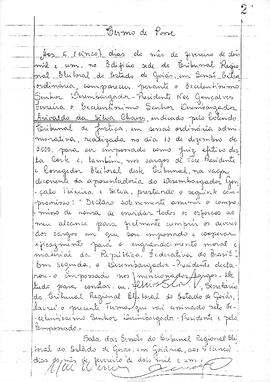 2
Termo de Posse
Aos 5 (cinco) dias do mês de fevereiro de dois
mil e um, no Edifício sede do Tribunal Regional
Eleitoral do Estado de Goiás, em Sessão
ordinária, compareceu perante o Excelentíssimo
Senhor Desembargador-Presidente Noé Gonçalves
Ferreira o Excelentíssimo Senhor Desembargador
Arivaldo da Silva Chaves, indicado pelo Colendo
Tribunal de Justiça, em sessão ordinária admi-
nistrativa, realizada no dia 13 de dezembro de
2000, para ser empossado como Juiz efetivo des-
ta Corte e, também, nos cargos de Vice Presidente
e Corregedor Eleitoral deste Tribunal, na vaga
decorrente da aposentadoria do Desembargador
Teixeira e Silva, prestando o seguinte com-
promisso: "Declaro solenemente assumir o compro-
misso de honra de envidar todos os esforços ao
meu alcance para fielmente cumprir os deveres
dos cargos em que sou empossado e cooperar
eficazmente para o engrandecimento moral e
material da República Federativa do Brasil".
Em seguida, o Desembargador-Presidente decla-
rou o empossado nos mencionados cargos. Do
que tudo para constar, eu, Secretário
do Tribunal Regional Eleitoral do Estado de Goiás,
lavrei o presente Termo que vai assinado pelo Ex-
celentíssimo Senhor Desembargador-Presidente e pelo
Empossado.
Sala das Sessões do Tribunal Regional Elei-
toral do Estado de Goiás, em Goiânia, aos 5 (cinco)
dias do mês de fevereiro de dois mil e um.